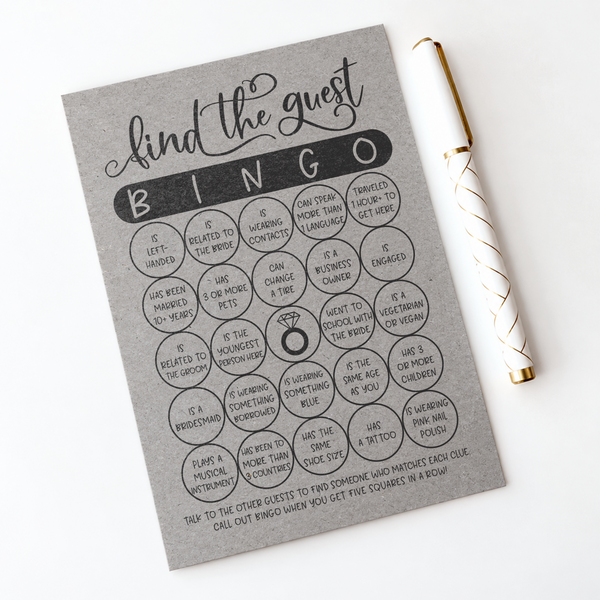 find the guest
BINGO
IS
LEFT-
HANDED
IS
RELATED TO
THE BRIDE
IS
WEARING
CONTACTS
CAN SPEAK
MORE THAN
1 LANGUAGE
TRAVELED
1 HOUR+ TO
GET HERE
HAS BEEN
MARRIED
10+ YEARS
HAS
3 OR MORE
PETS
CAN
CHANGE
A TIRE
IS A
BUSINESS
OWNER
IS
ENGAGED
IS
RELATED TO
THE GROOM
IS THE
YOUNGEST
PERSON HERE
WENT TO
SCHOOL WITH
THE BRIDE
IS A
VEGETARIAN
OR VEGAN
IS A
BRIDESMAID
IS WEARING
SOMETHING
BORROWED
IS WEARING
SOMETHING
BLUE
IS THE
SAME AGE
AS YOU
HAS 3
OR MORE
CHILDREN
PLAYS A
MUSICAL
INSTRUMENT
HAS BEEN TO
MORE THAN
3 COUNTRIES
HAS THE
SAME
SHOE SIZE
HAS
A TATTOO
IS WEARING
PINK NAIL
POLISH
TALK TO THE OTHER GUESTS TO FIND SOMEONE WHO MATCHES EACH CLUE.
CALL OUT BINGO WHEN YOU GET FIVE SQUARES IN A ROW!